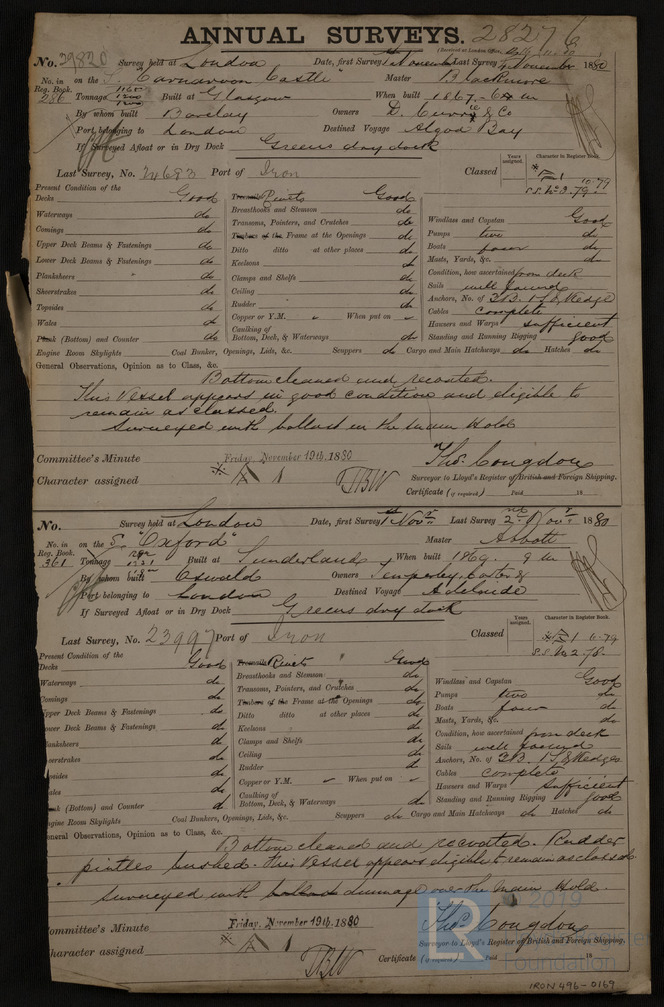 ANNUAL SURVEYS. 28276
No. 29820 Survey held at London Date, first Survey 1st November Last Survey November 1880
(Received at London Office
No. in Reg. Book. 286 on the S. "Carnarvon Castle" Master Blackmore
Tonnage Built at Glasgow When built 1867
By whom built Barclay Owners D. Currie & Co
Port belonging to London Destined Voyage Algoa Bay
If Surveyed Afloat or in Dry Dock Greens dry dock
Last Survey, No. 24683 Port of Iron Classed
Years assigned. Character in Register Book.
10-79
S.S. No 3. 79
Present Condition of the
Decks Good Rivets Good
Waterways do Breasthooks and Stemson do
Comings do Transoms, Pointers, and Crutches do Windlass and Capstan Good
Upper Deck Beams & Fastenings do Timbers of the Frame at the Openings do Pumps two do
Lower Deck Beams & Fastenings do Ditto ditto at other places do Boats four do
Planksheers do Keelsons do Masts, Yards, &c. do
Sheerstrakes do Clamps and Shelfs do Condition, how ascertained from deck
Topsides do Ceiling do Sails well found
Wales do Rudder do Anchors, No. of 3B. 1S. & Kedge
Plank (Bottom) and Counter do Copper or Y.M. When put on Cables complete
Caulking of Bottom, Deck, & Waterways do Hawsers and Warps sufficient
Standing and Running Rigging good
Engine Room Skylights Coal Bunker, Openings, Lids, &c. Scuppers do Cargo and Main Hatchways do Hatches do
General Observations, Opinion as to Class, &c.
Bottom cleaned and recoated.
This Vessel appears in good condition and eligible to
remain as classed.
Surveyed with ballast in the main Hold
Committee's Minute Friday, November 19th, 1880 Thos. Congdon
Character assigned A 1 Surveyor to Lloyd's Register of British and Foreign Shipping.
Certificate (if required) Paid 18
No. Survey held at London Date, first Survey 1st Nov Last Survey 2nd Nov 1880
No. in Reg. Book. 361 on the S. "Oxford" Master Abbott
Tonnage Built at Sunderland When built 1869. 9 m
By whom built Oswald Owners Temperley, Carter &
Port belonging to London Destined Voyage Adelaide
If Surveyed Afloat or in Dry Dock Greens dry dock
Last Survey, No. 23997 Port of Iron Classed
Years assigned. Character in Register Book.
6-79
S.S. No 2. 78
Present Condition of the
Decks Good Rivets Good
Waterways do Breasthooks and Stemson do Windlass and Capstan Good
Comings do Transoms, Pointers, and Crutches do Pumps two do
Upper Deck Beams & Fastenings do Timbers of the Frame at the Openings do Boats four do
Lower Deck Beams & Fastenings do Ditto ditto at other places do Masts, Yards, &c. do
Planksheers do Keelsons do Condition, how ascertained from deck
Sheerstrakes do Clamps and Shelfs do Sails well found
Topsides do Ceiling do Anchors, No. of 3B. 1S. & Kedges
Wales do Rudder do Cables complete
Plank (Bottom) and Counter do Copper or Y.M. When put on Hawsers and Warps sufficient
Caulking of Bottom, Deck, & Waterways do Standing and Running Rigging good
Engine Room Skylights Coal Bunkers, Openings, Lids, &c. Scuppers do Cargo and Main Hatchways do Hatches do
General Observations, Opinion as to Class, &c.
Bottom cleaned and recoated. Rudder
pintles bushed. This Vessel appears eligible to remain as classed.
Surveyed with dunnage over the main Hold.
Committee's Minute Friday, November 19th, 1880 Thos. Congdon
Character assigned A 1 Surveyor to Lloyd's Register of British and Foreign Shipping.
Certificate Paid 18
© 2019
Foundation
IRON 496-0169